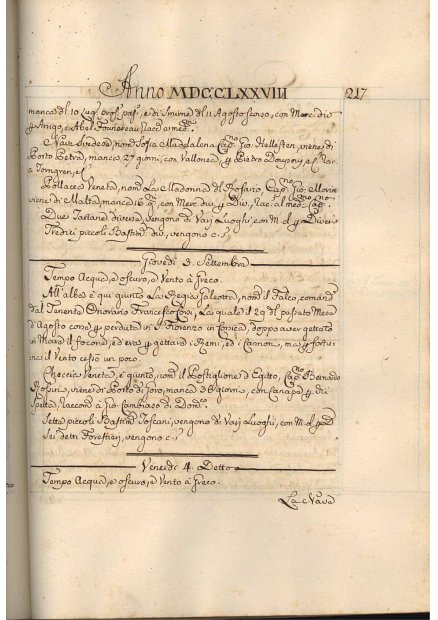 Anno MDCCLXXVIII 217
manca dl 10 e di Smirne dl 11 Agosto scorso, con Merc. div
p Arrigo, e Abel Fonnereau
Nave Svedese nom Sofia Maddalena Cap.no Gio. Hellsten, viene di
Porto manca 27 giorni, con Vallonea, p Pietro
a Tornqren, e C.
Pollacca Veneta, nom La Madonna dl Rosario, Cap.no Gio.
viene di Malta, manca 16 con Merc. div. p Div. Rac. al Cap.no
Due Tartane diverse, vengono di Varj Luoghi, con M. d. p Diversi
Tredici piccoli Bastim. div. vengono c. s.
Giovedi 3. Settembre
Tempo Acqua, e oscuro, e Vento à Greco.
All' alba è qui giunto La Regia Galeotta, nom il Falco, comand
dal Tenente Onorario Francesco La quale il 29 dl passato Mese
d'Agosto corse p perduta in S. Fiorenzo in Corsica, doppo aver gettato
in Mare il focone, ed era p gettare i Remi, ed i Cannon, ma p fortu
na il Vento cessò un poco.
Checcia Veneta, è giunto, nom il Postiglione d'Egitto, Cap.no Bernardo
viene di Porto di Goro, manca 36 giorni, con Canapa p di
Raccom. a Gio Cambiaso di Dom.co
Sette piccoli Bastim. Toscani, vengono di Varj Luoghi, con M. d. p D
Sei detti Forestieri, vengono c. s.
Venerdi 4. Detto
Tempo Acqua, e oscuro, e Vento à Greco.
La Nave